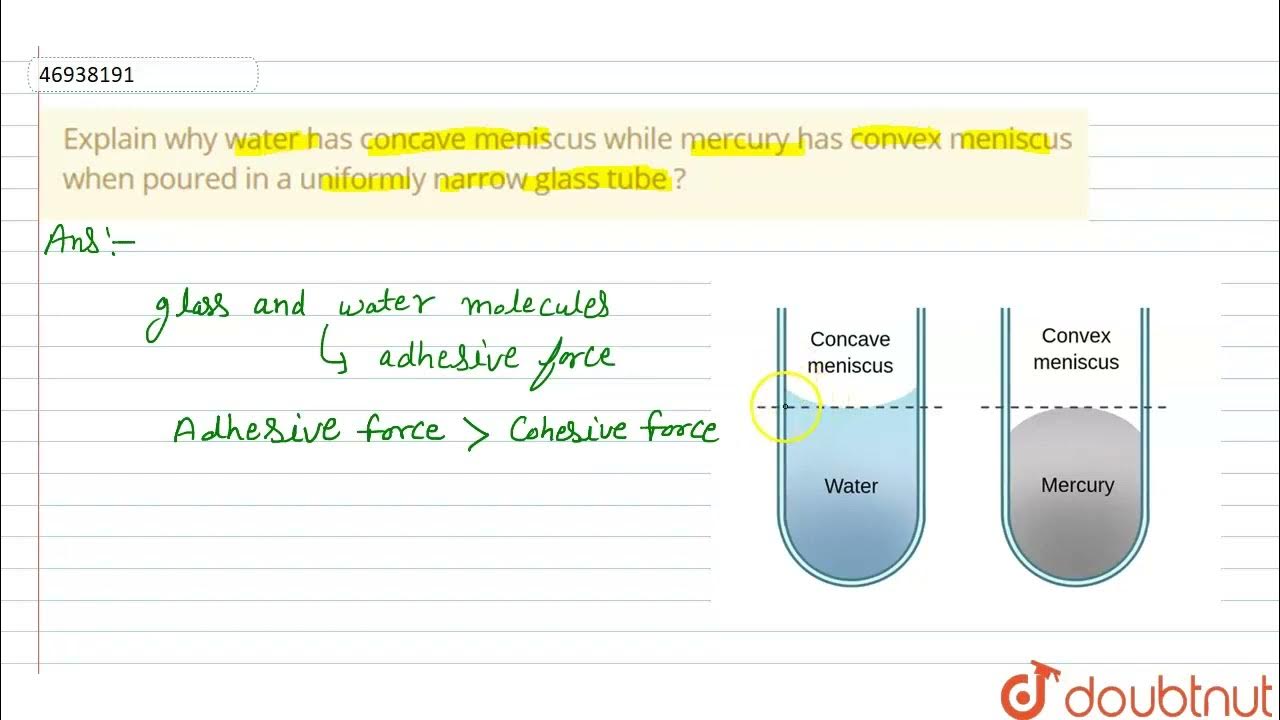 46938191
Explain why water has concave meniscus while mercury has convex meniscus
when poured in a uniformly narrow glass tube ?
Ans :-
glass and water molecules
↳ adhesive force
Adhesive force > Cohesive force
Concave
meniscus
Water
Convex
meniscus
Mercury
doubtnut